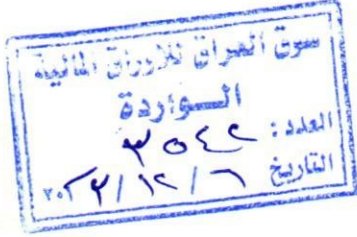 سوق العراق للاوراق المالية
الواردة
العدد: ٣٥٤٢
التاريخ ٦/١٢/٢٠٢٣